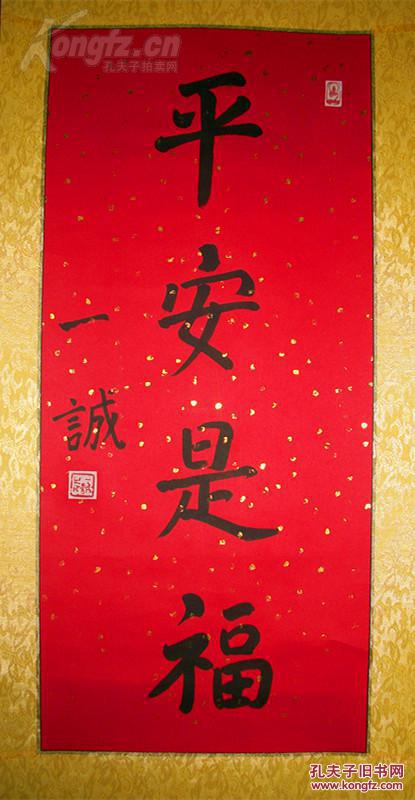 Kongfz.cn
孔夫子拍卖网
平安是福
一誠
孔夫子旧书网
KONGFZ.COM